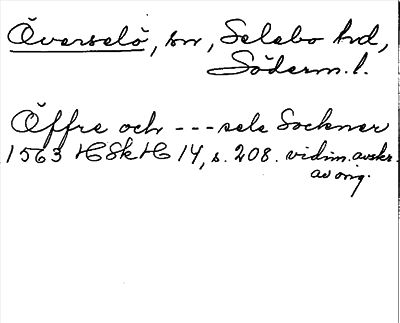 Överselö, sn, Selebo hd,
Söderm. l.
Öffre och --- sele Sockner
1563 HSkH 14, s. 208. vidim. avskr.
av orig.